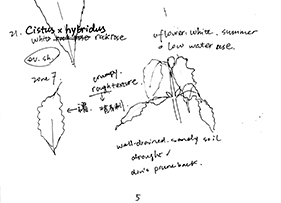 21. Cistus x hybridus
white rockrose
ev. sh.
zone 7
crumpy.
rough texture.
flower: white. summer
low water use.
well-drained. sandy soil
drought ✓
don't prune back.
5